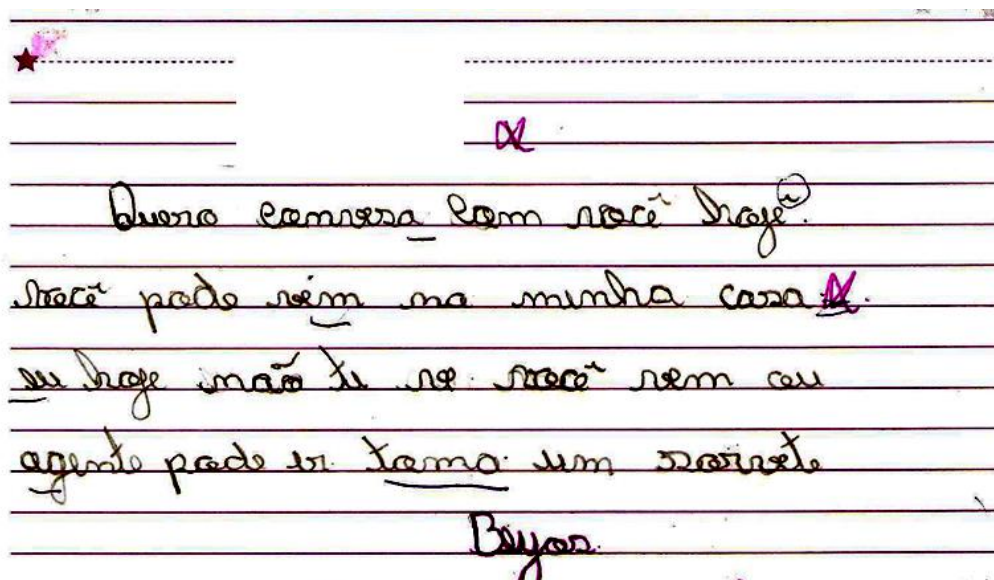 Quero conversa com você hoje.
você pode vim na minha casa
su hoje não ti ve você vem ou
agente pode ir toma um sorvete
Beijos.